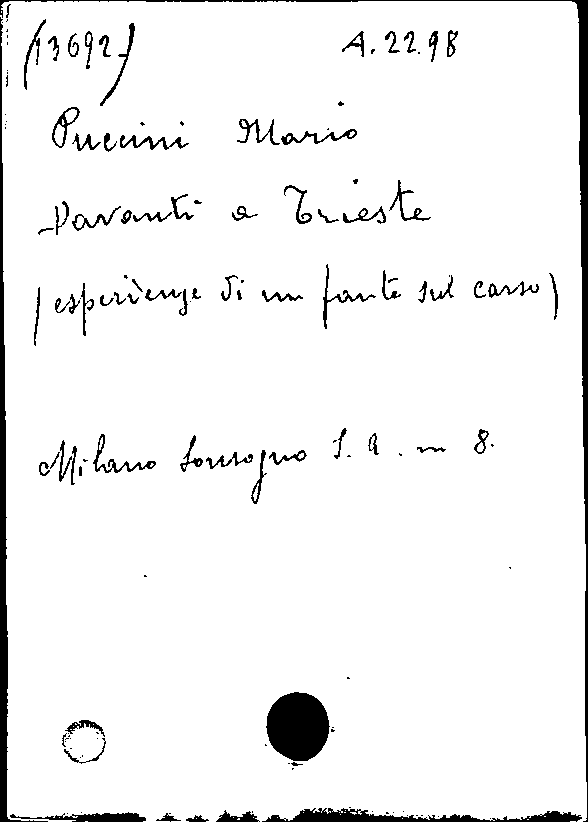 (13692) A.22.98
Puccini Mario
Davanti a Trieste
(esperienze di un fante sul carso)
Milano Sonzogno S. a. in 8.